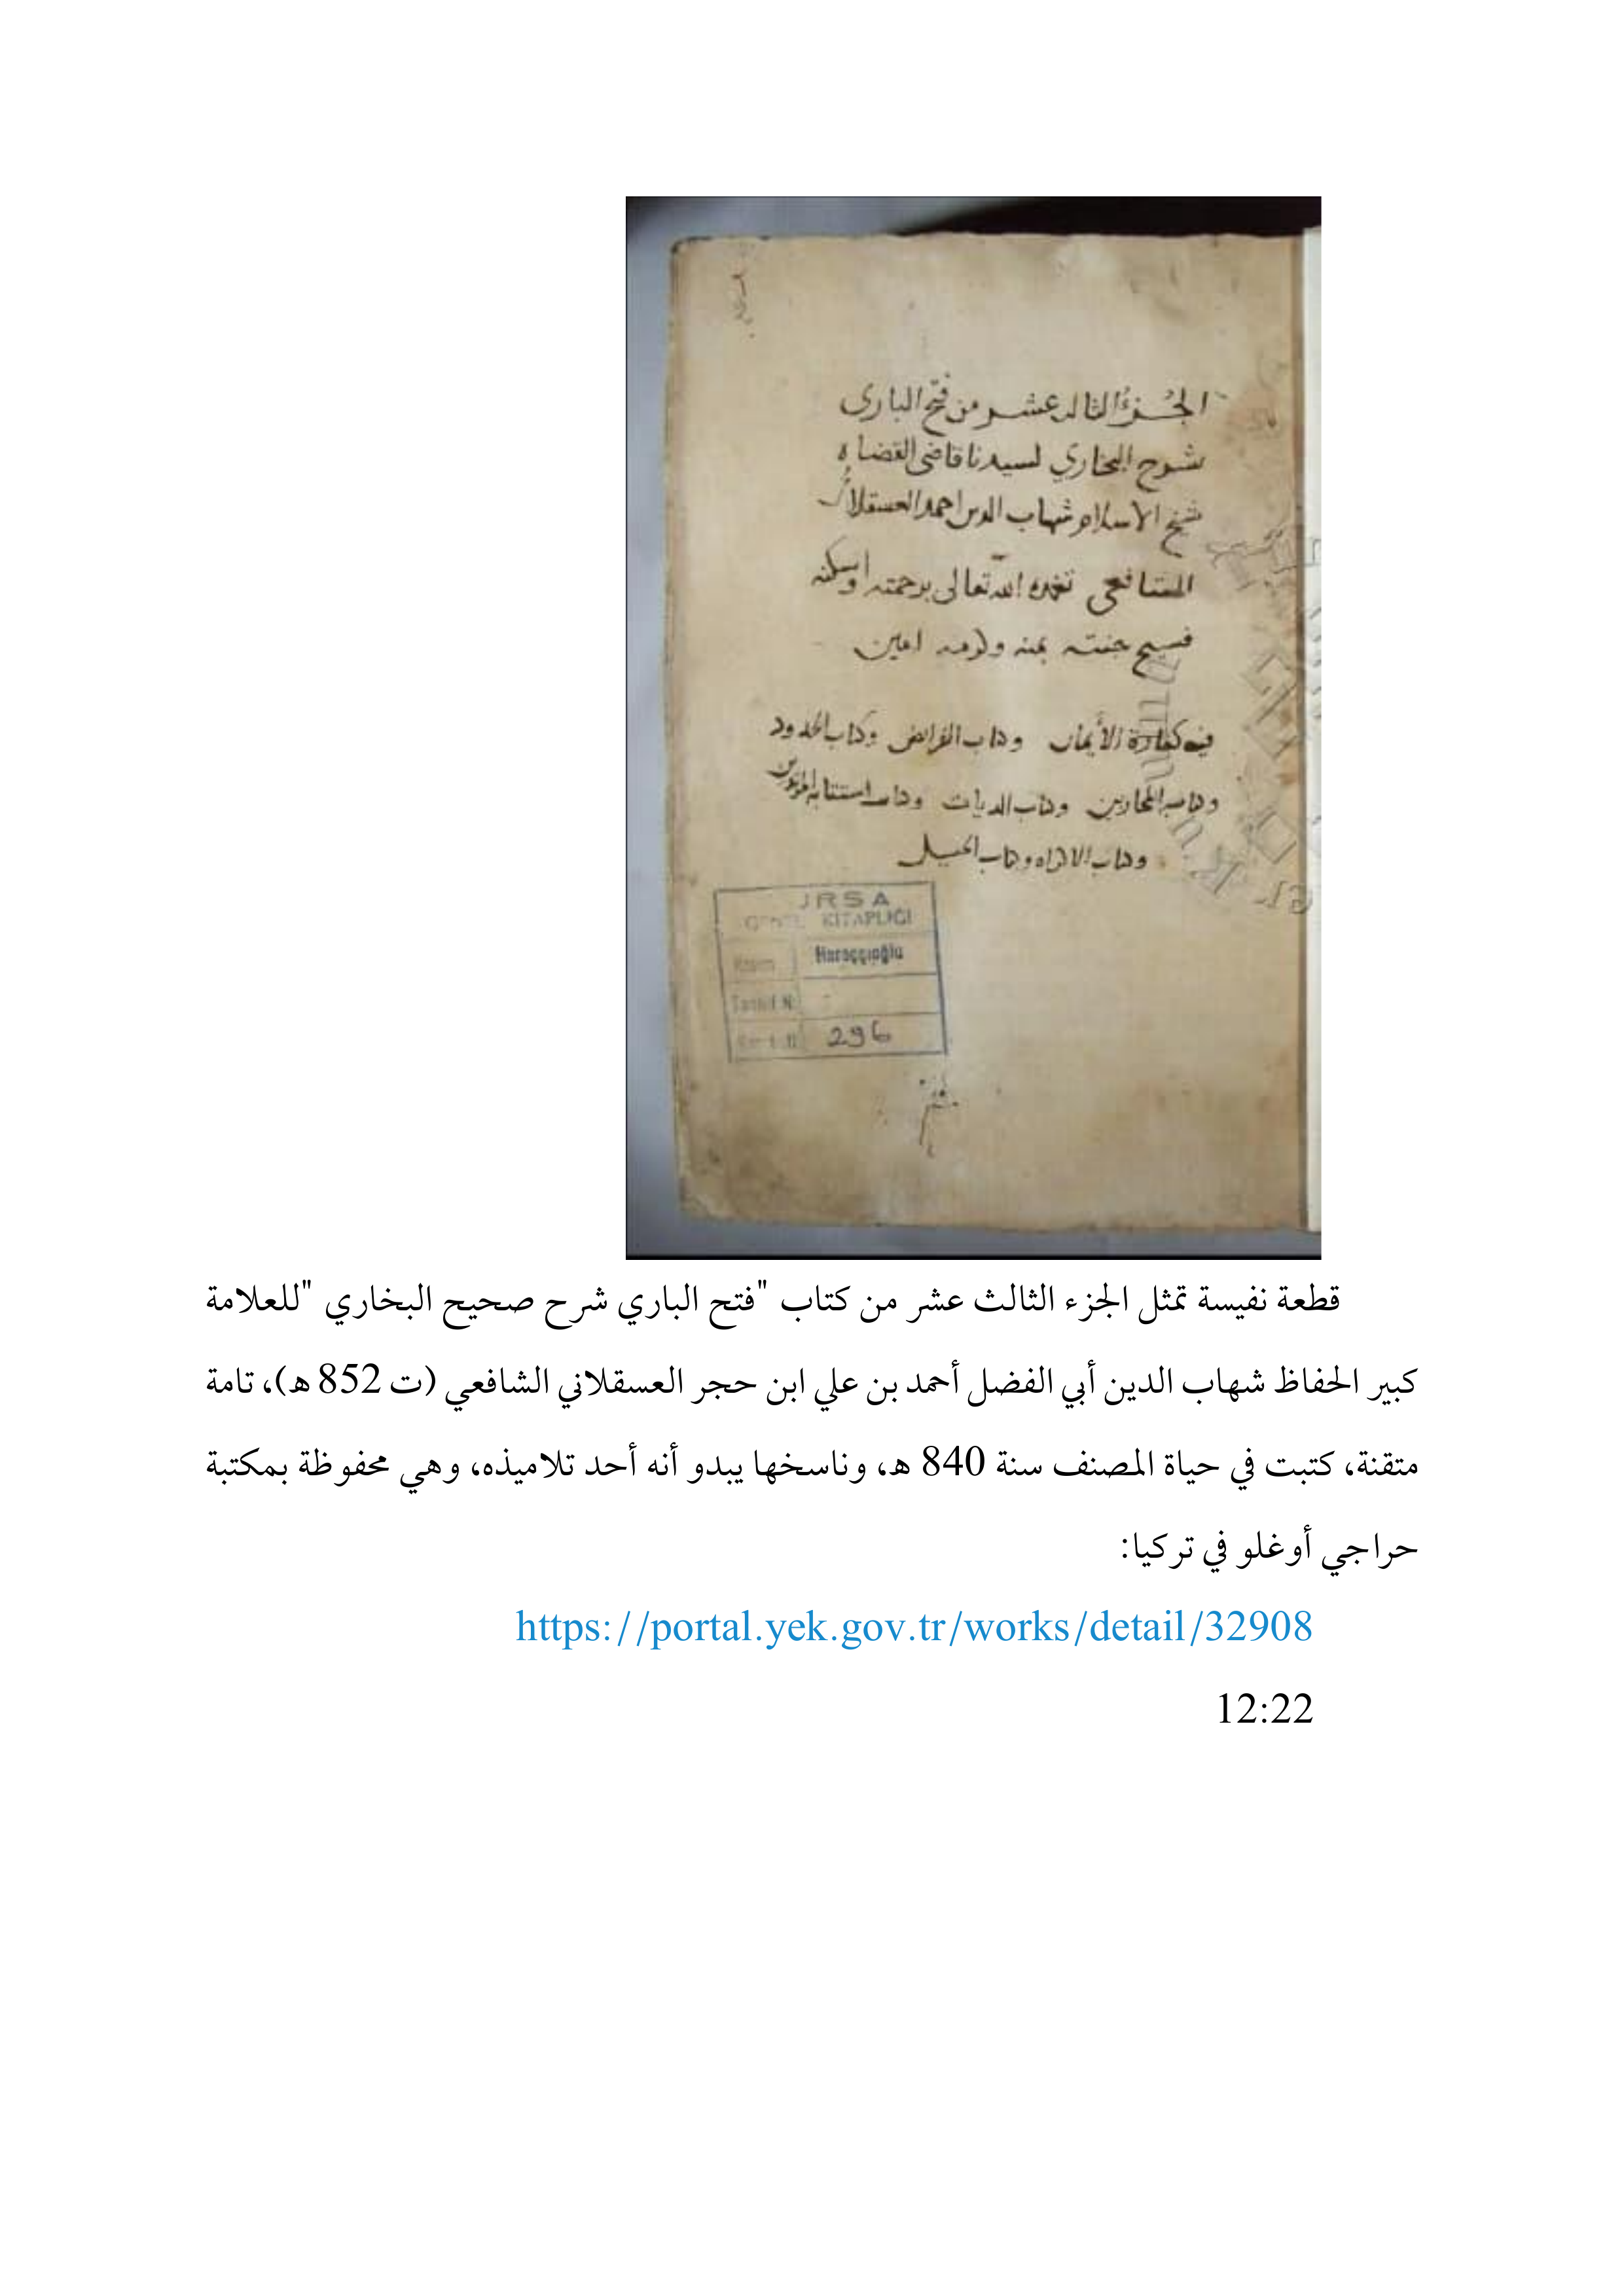 الجُزءُ الثالث عشر من فتح الباري
شرح البخاري لسيدنا قاضي القضاه
شيخ الاسلام شهاب الدين احمد العسقلاني
الشافعي تغمده الله تعالى برحمته واسكنه
فسيح جنته بمنه وكرمه امين
فيه كفارة الأيمان وكتاب الفرائض وكتاب الحدود
وكتاب المحاربين وكتاب الديات وكتاب استتابة المرتدين
وكتاب الاكراه وكتاب الحيل
KİTAPLIĞI
Haraççıoğlu
296
قطعة نفيسة تمثل الجزء الثالث عشر من كتاب "فتح الباري شرح صحيح البخاري "للعلامة
كبير الحفاظ شهاب الدين أبي الفضل أحمد بن علي ابن حجر العسقلاني الشافعي (ت 852 هـ)، تامة
متقنة، كتبت في حياة المصنف سنة 840 هـ، وناسخها يبدو أنه أحد تلاميذه، وهي محفوظة بمكتبة
حراجي أوغلو في تركيا:
https://portal.yek.gov.tr/works/detail/32908
12:22